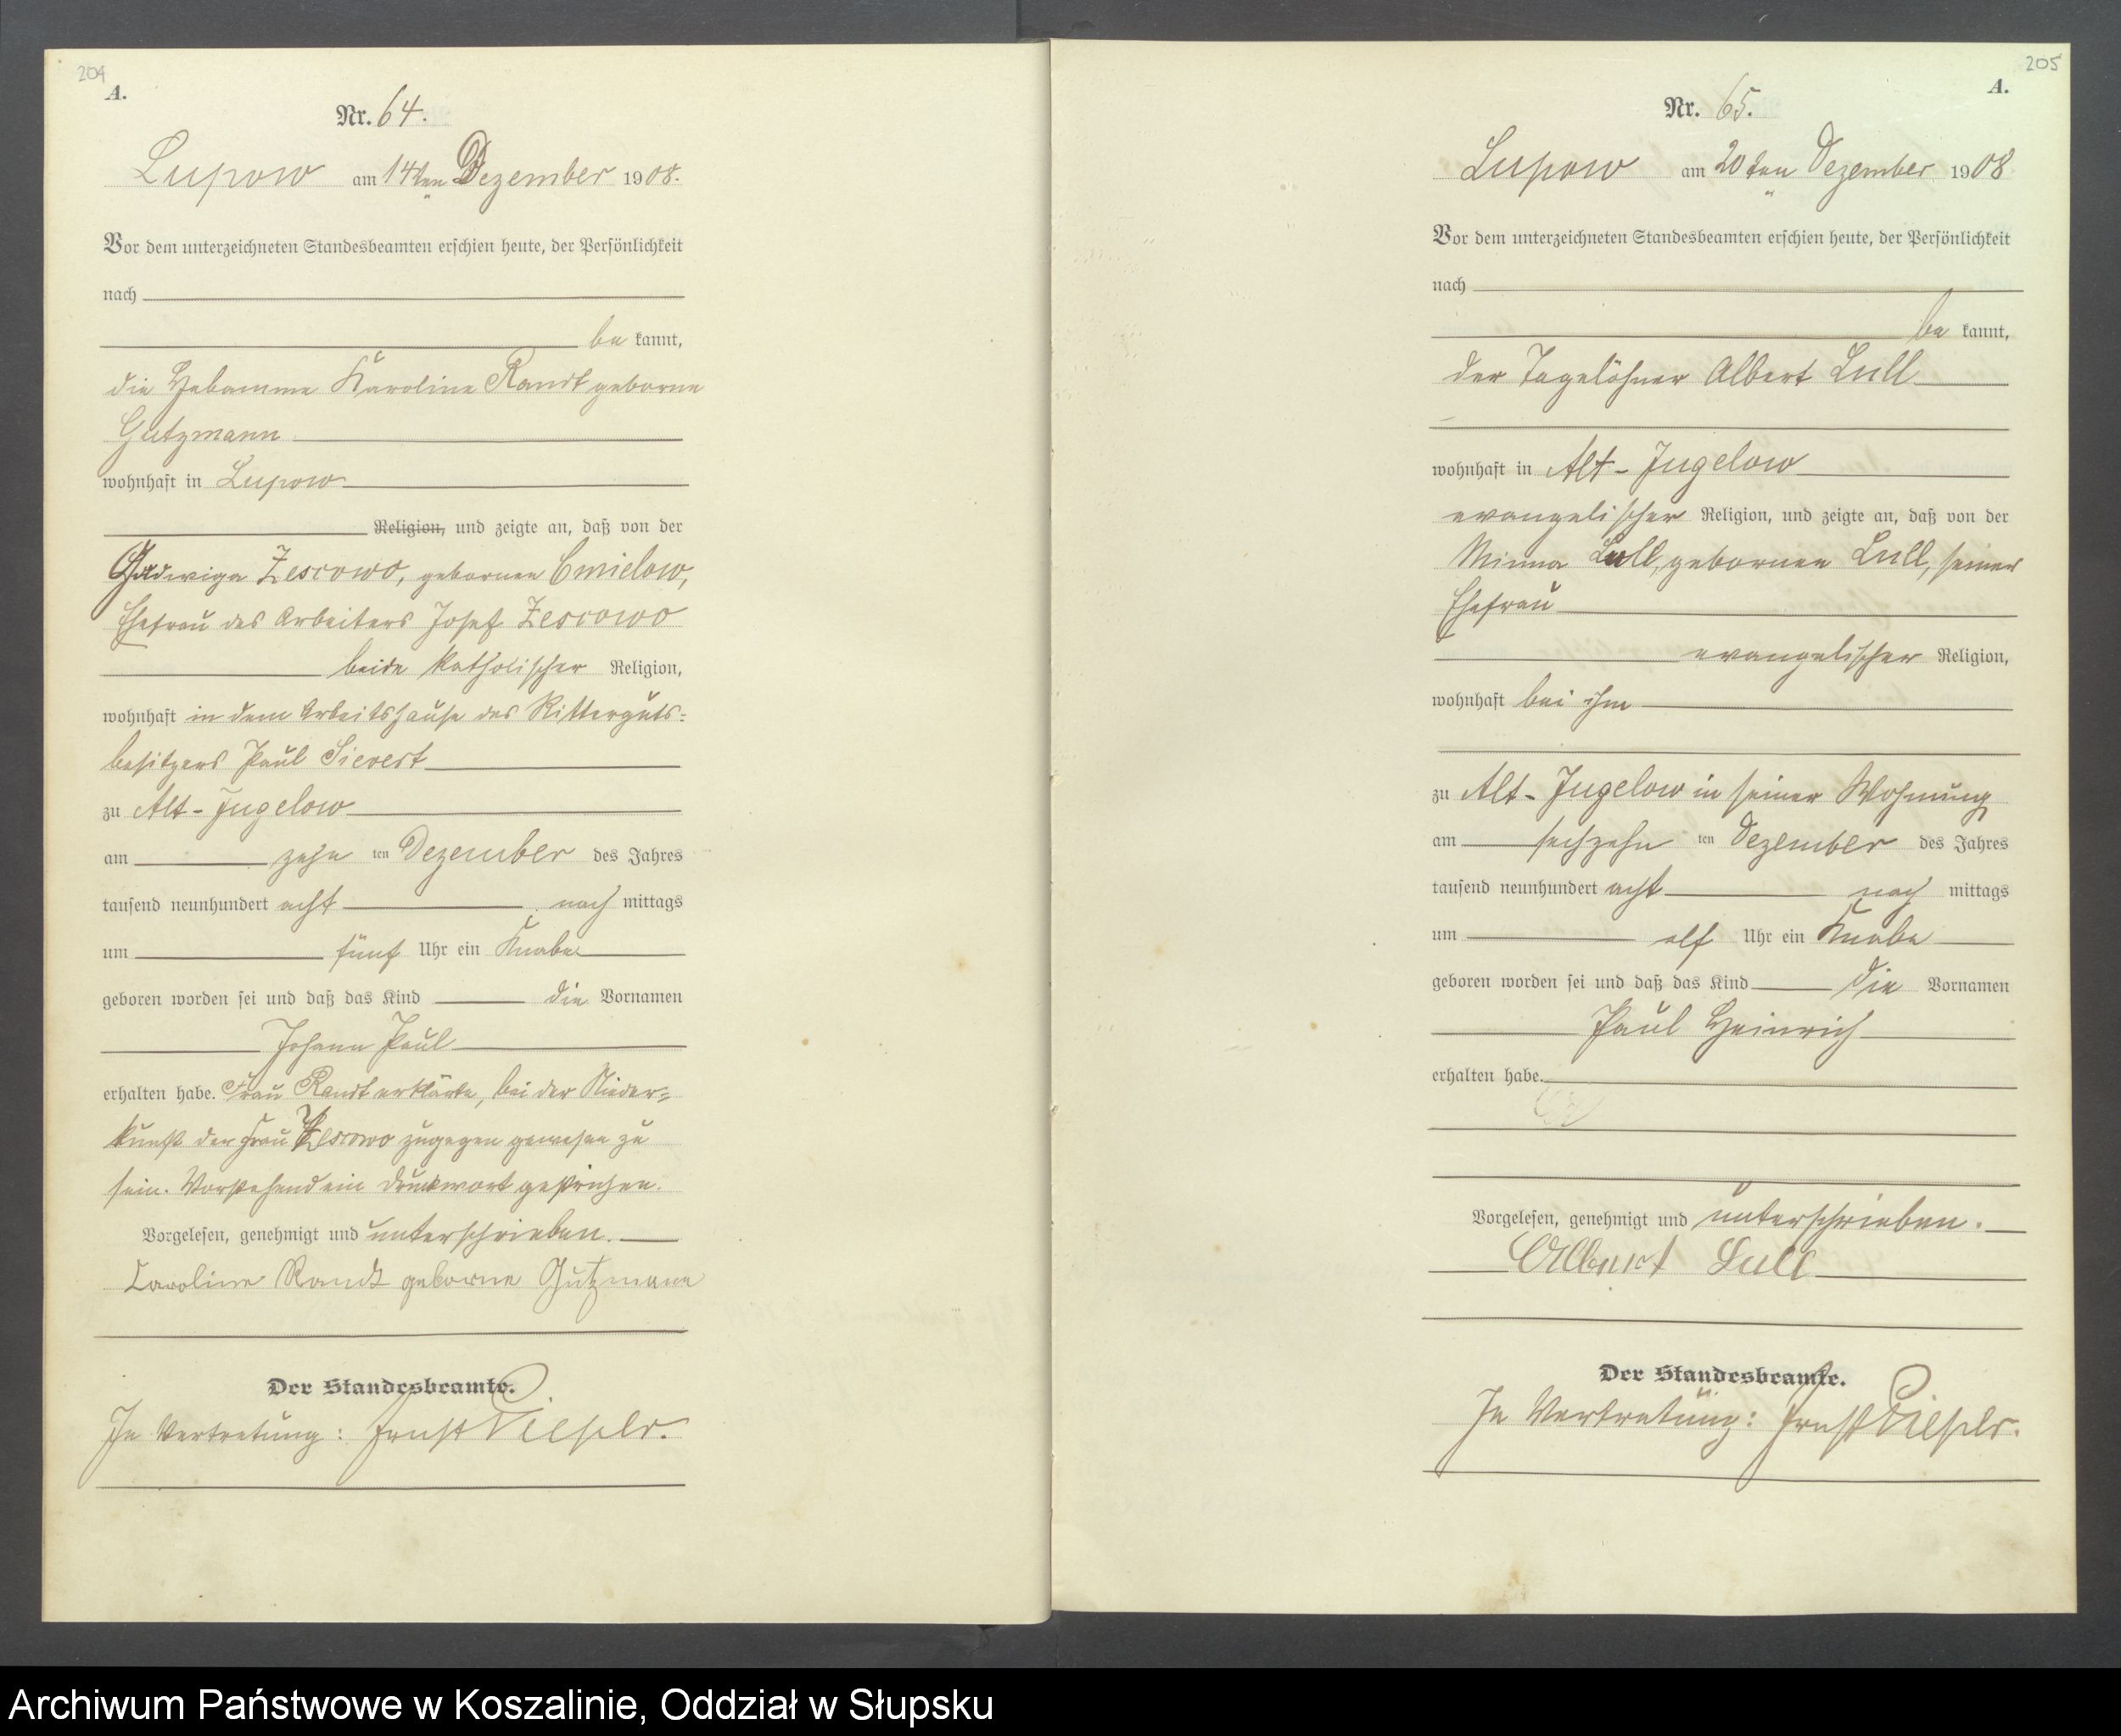 204
A.
Nr. 64.
Lupow am 14ten Dezember 1908.
Vor dem unterzeichneten Standesbeamten erschien heute, der Persönlichkeit
nach
be kannt,
die Hebamme Karoline Randt geborne
Gutzmann
wohnhaft in Lupow
Religion, und zeigte an, daß von der
Zescowo, gebornen Cmielow,
Ehefrau des Arbeiters Josef Zescowo
beide katholischer Religion,
wohnhaft in dem Arbeitshause des Ritterguts-
besitzers Paul Sievert
zu Alt-Jugelow
am zehn ten Dezember des Jahres
tausend neunhundert acht nach mittags
um fünf Uhr ein Knabe
geboren worden sei und daß das Kind die Vornamen
Johann Paul
erhalten habe. Frau Randt erklärte, bei der Nieder-
kunft der Frau Zescowo zugegen gewesen zu
sein. Vorstehend ein Druckwort gestrichen.
Vorgelesen, genehmigt und unterschrieben.
Caroline Randt geborne Gutzmann
Der Standesbeamte.
In Vertretung: Ernst
205
A.
Nr. 65.
Lupow am 20ten Dezember 1908
Vor dem unterzeichneten Standesbeamten erschien heute, der Persönlichkeit
nach
be kannt,
der Tagelöhner Albert Lull
wohnhaft in Alt-Jugelow
evangelischer Religion, und zeigte an, daß von der
Minna Lull, gebornen Lull, seiner
Ehefrau
evangelischer Religion,
wohnhaft bei ihm
zu Alt-Jugelow in seiner Wohnung
am sechzehn ten Dezember des Jahres
tausend neunhundert acht nach mittags
um elf Uhr ein Knabe
geboren worden sei und daß das Kind die Vornamen
Paul Heinrich
erhalten habe.
Vorgelesen, genehmigt und unterschrieben.
Albert Lull
Der Standesbeamte.
In Vertretung: Ernst
Archiwum Państwowe w Koszalinie, Oddział w Słupsku